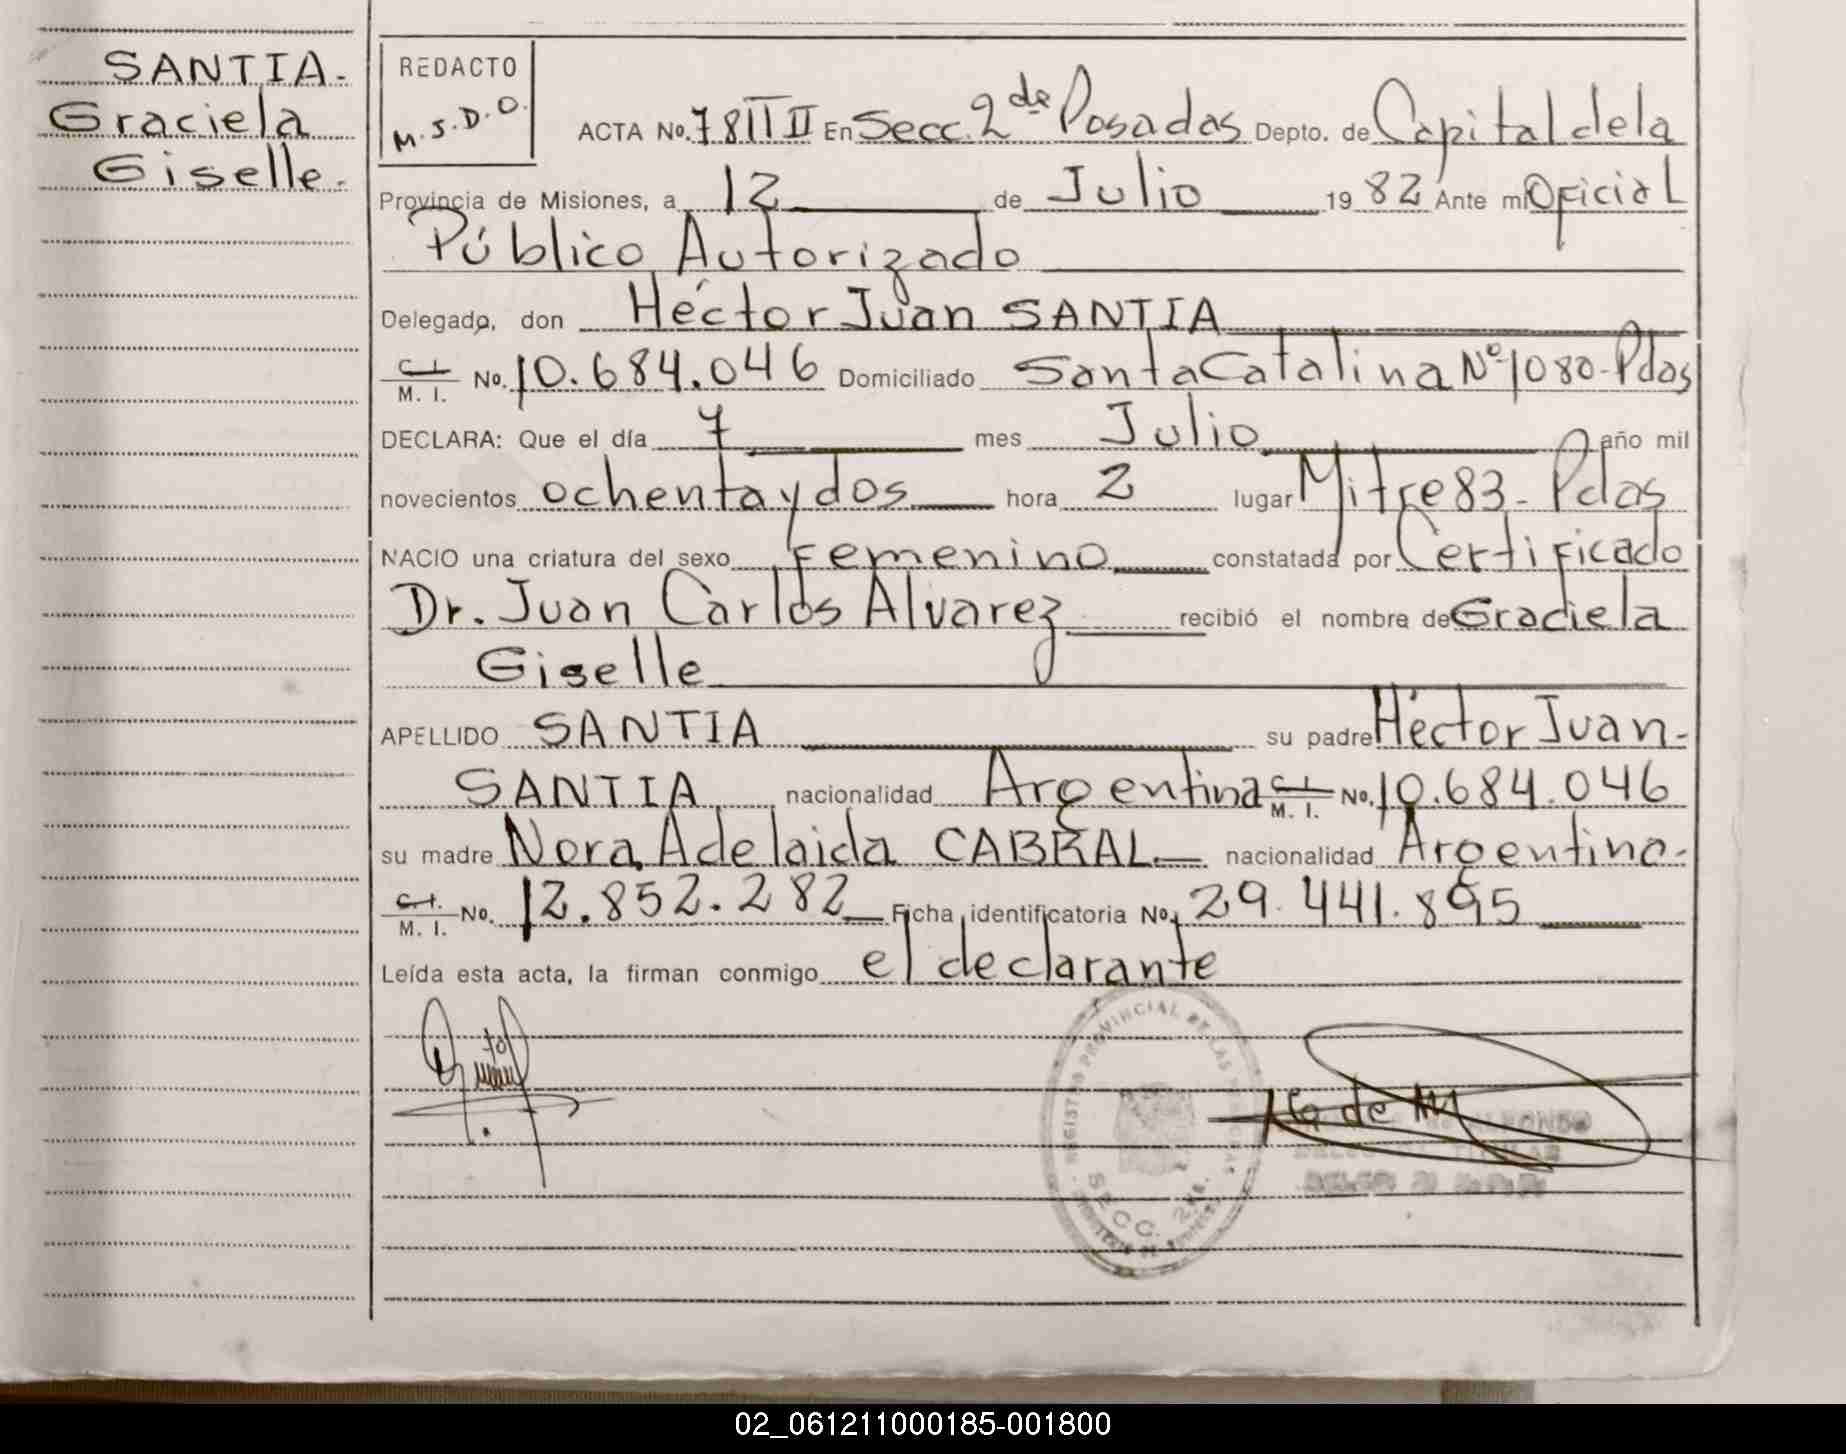 SANTIA-
Graciela
Giselle-
REDACTO
M.S.D.O.
ACTA No. 78 III II En Secc. 2da Posadas Depto. de Capital de la
Provincia de Misiones, a 12 de Julio 1982 Ante mi Oficial
Público Autorizado
Delegado, don Héctor Juan SANTIA
C.I. M. I. No. 10.684.046 Domiciliado Santa Catalina Nº 1080-Pdas
DECLARA: Que el día 7 mes Julio año mil
novecientos ochenta y dos hora 2 lugar Mitre 83- Pdas
NACIO una criatura del sexo femenino constatada por Certificado
Dr. Juan Carlos Alvarez recibió el nombre de Graciela
Giselle
APELLIDO SANTIA su padre Héctor Juan-
SANTIA nacionalidad Argentina C.I. M. I. No. 10.684.046
su madre Nora Adelaida CABRAL nacionalidad Argentina-
C.I. M. I. No. 12.852.282 Ficha identificatoria No. 29.441.895
Leída esta acta, la firman conmigo el declarante
REGISTRO PROVINCIAL DE LAS PERSONAS
SECC. 2da.
02_061211000185-001800